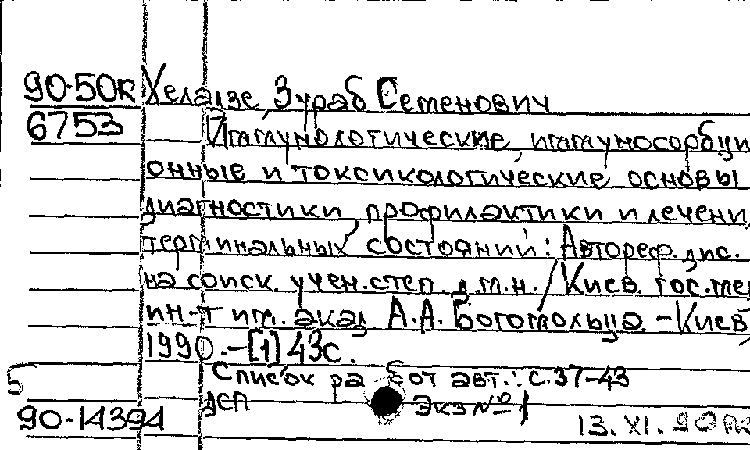 90-50к Хеладзе, Зураб Семенович
6753 Иммунологические, иммуносорбци
онные и токсикологические основы
диагностики, профилактики и лечени
терминальных состояний: Автореф. дис.
на соиск. учен. степ. д.м.н. / Киев. гос. ме
ин-т им. акад. А.А. Богомольца - Киев,
1990. - [1] 43с.
Список работ авт.: с. 37-43
5 ДСП Экз № 1
90-14394 13. XI.